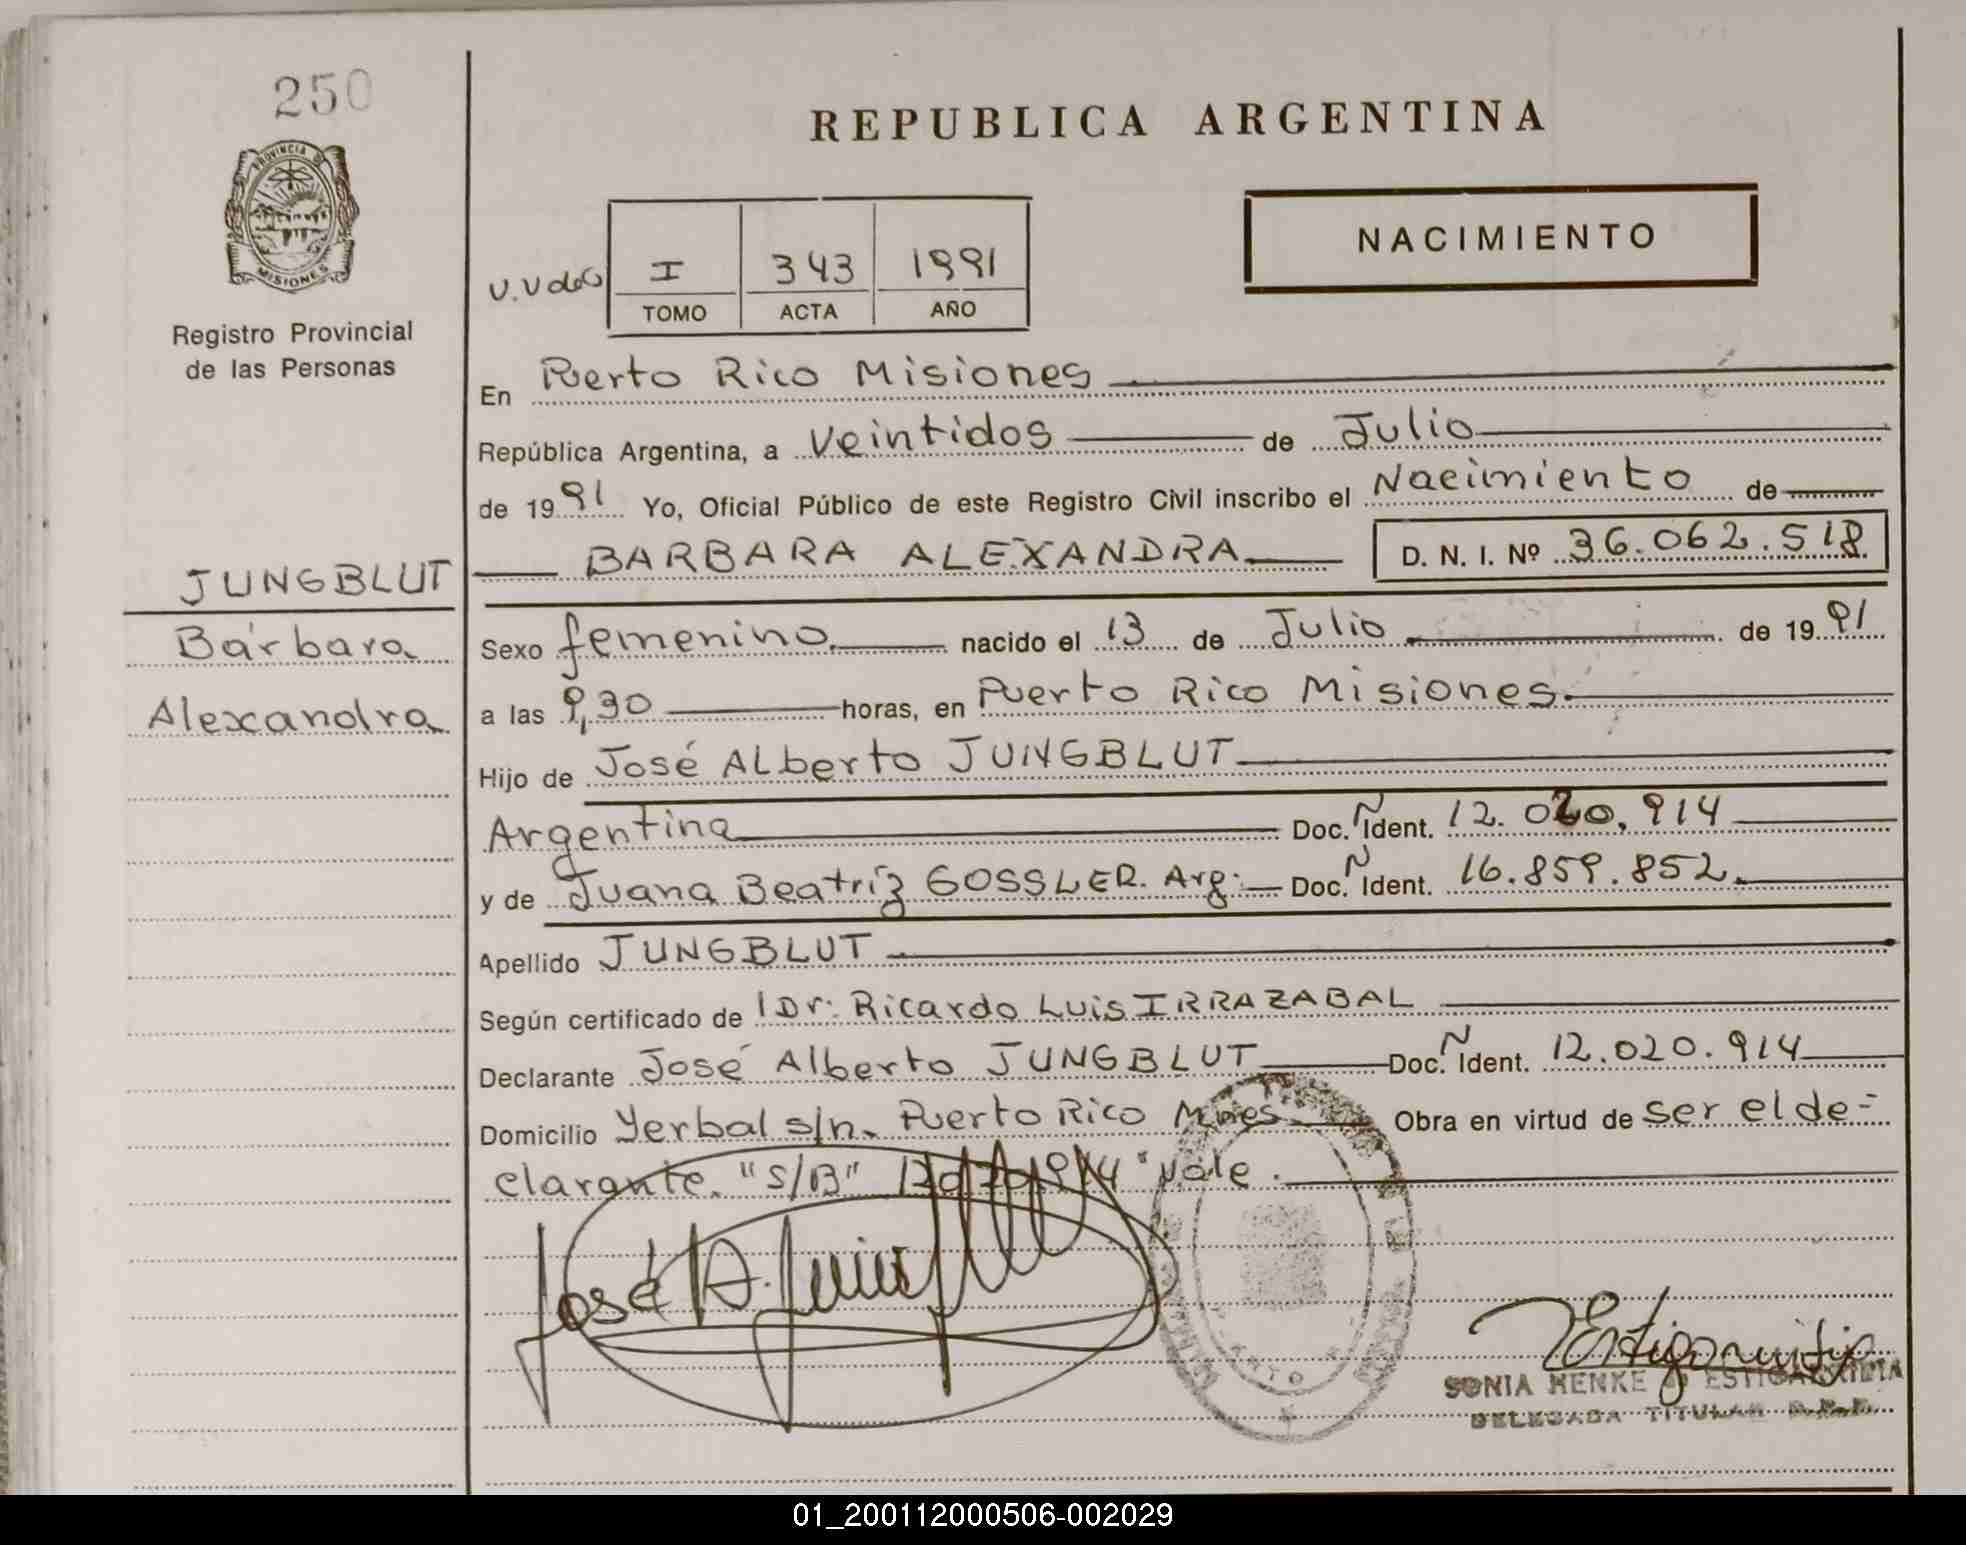 250
REPUBLICA ARGENTINA
PROVINCIA DE
MISIONES
Registro Provincial
de las Personas
NACIMIENTO
I 343 1991
TOMO ACTA AÑO
En Puerto Rico Misiones
República Argentina, a Veintidos de Julio
de 1991 Yo, Oficial Público de este Registro Civil inscribo el Nacimiento de
JUNGBLUT
Bárbara
Alexandra
BARBARA ALEXANDRA D. N. I. Nº 36.062.518
Sexo femenino nacido el 13 de Julio de 1991
a las 9,30 horas, en Puerto Rico Misiones.
Hijo de José Alberto JUNGBLUT
Argentina Doc. N Ident. 12.020.914
y de Juana Beatríz GOSSLER. Arg. Doc. N Ident. 16.859.852.
Apellido JUNGBLUT
Según certificado de l Dr: Ricardo Luis IRRAZABAL
Declarante José Alberto JUNGBLUT Doc. N Ident. 12.020.914
Domicilio Yerbal s/n. Puerto Rico Mnes Obra en virtud de ser el de=
clarante. "S/B" 12.020.914 "Vale.
José A.
SONIA HENKE
DELEGADA TITULAR
01_200112000506-002029